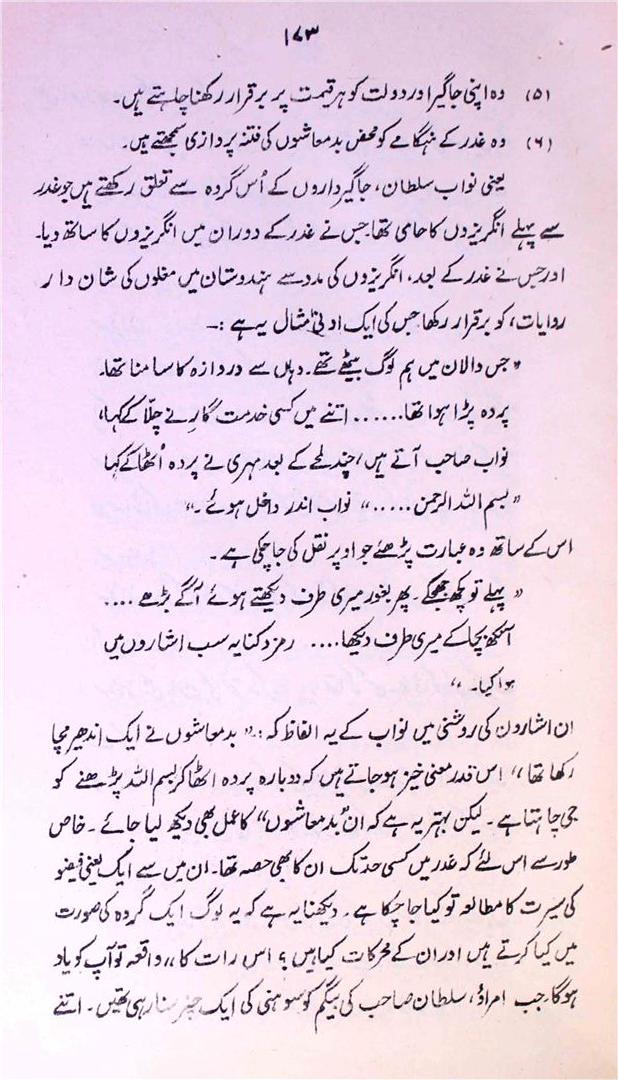 ۱۷۳
(۵) وہ اپنی جاگیر اور دولت کو ہر قیمت پر برقرار رکھنا چاہتے ہیں۔
(۶) وہ غدر کے ہنگامے کو محض بدمعاشوں کی فتنہ پردازی سمجھتے ہیں۔
یعنی نواب سلطان، جاگیرداروں کے اُس گروہ سے تعلق رکھتے ہیں جو غدر
سے پہلے انگریزوں کا حامی تھا۔ جس نے غدر کے دوران میں انگریزوں کا ساتھ دیا۔
اور جس نے غدر کے بعد، انگریزوں کی مدد سے ہندوستان میں مغلوں کی شان دار
روایات، کو برقرار رکھا جس کی ایک ادنیٰ مثال یہ ہے :۔
"جس دالان میں ہم لوگ بیٹھے تھے۔ وہاں سے دروازہ کا سامنا تھا۔
پردہ پڑا ہوا تھا...... اتنے میں کسی خدمت گار نے چلّا کے کہا،
نواب صاحب آتے ہیں، چند لمحے کے بعد مہری نے پردہ اُٹھا کے کہا
"بسم اللہ الرحمن....." نواب اندر داخل ہوئے۔"
اس کے ساتھ وہ عبارت پڑھئے جو اوپر نقل کی جا چکی ہے۔
"پہلے تو کچھ جھجکے۔ پھر بغور میری طرف دیکھتے ہوئے آگے بڑھے ....
آنکھ بچا کے میری طرف دیکھا.... رمز و کنایہ سب اشاروں میں
ہوا کیا۔"
ان اشاروں کی روشنی میں نواب کے یہ الفاظ کہ :۔" بدمعاشوں نے ایک اندھیر مچا
رکھا تھا" اس قدر معنی خیز ہو جاتے ہیں کہ دوبارہ پردہ اٹھا کر بسم اللہ پڑھنے کو
جی چاہتا ہے۔ لیکن بہتر یہ ہے کہ ان "بدمعاشوں" کا عمل بھی دیکھ لیا جائے۔ خاص
طور سے اس لئے کہ غدر میں کسی حد تک ان کا بھی حصہ تھا۔ ان میں سے ایک یعنی فیضو
کی سیرت کا مطالعہ تو کیا جا چکا ہے۔ دیکھنا یہ ہے کہ یہ لوگ ایک گروہ کی صورت
میں کیا کرتے ہیں اور ان کے محرکات کیا ہیں؟ اس رات کا، واقعہ تو آپ کو یاد
ہوگا۔ جب امراؤ، سلطان صاحب کی بیگم کو سوہنی کی ایک چیز سنا رہی تھیں۔ اتنے